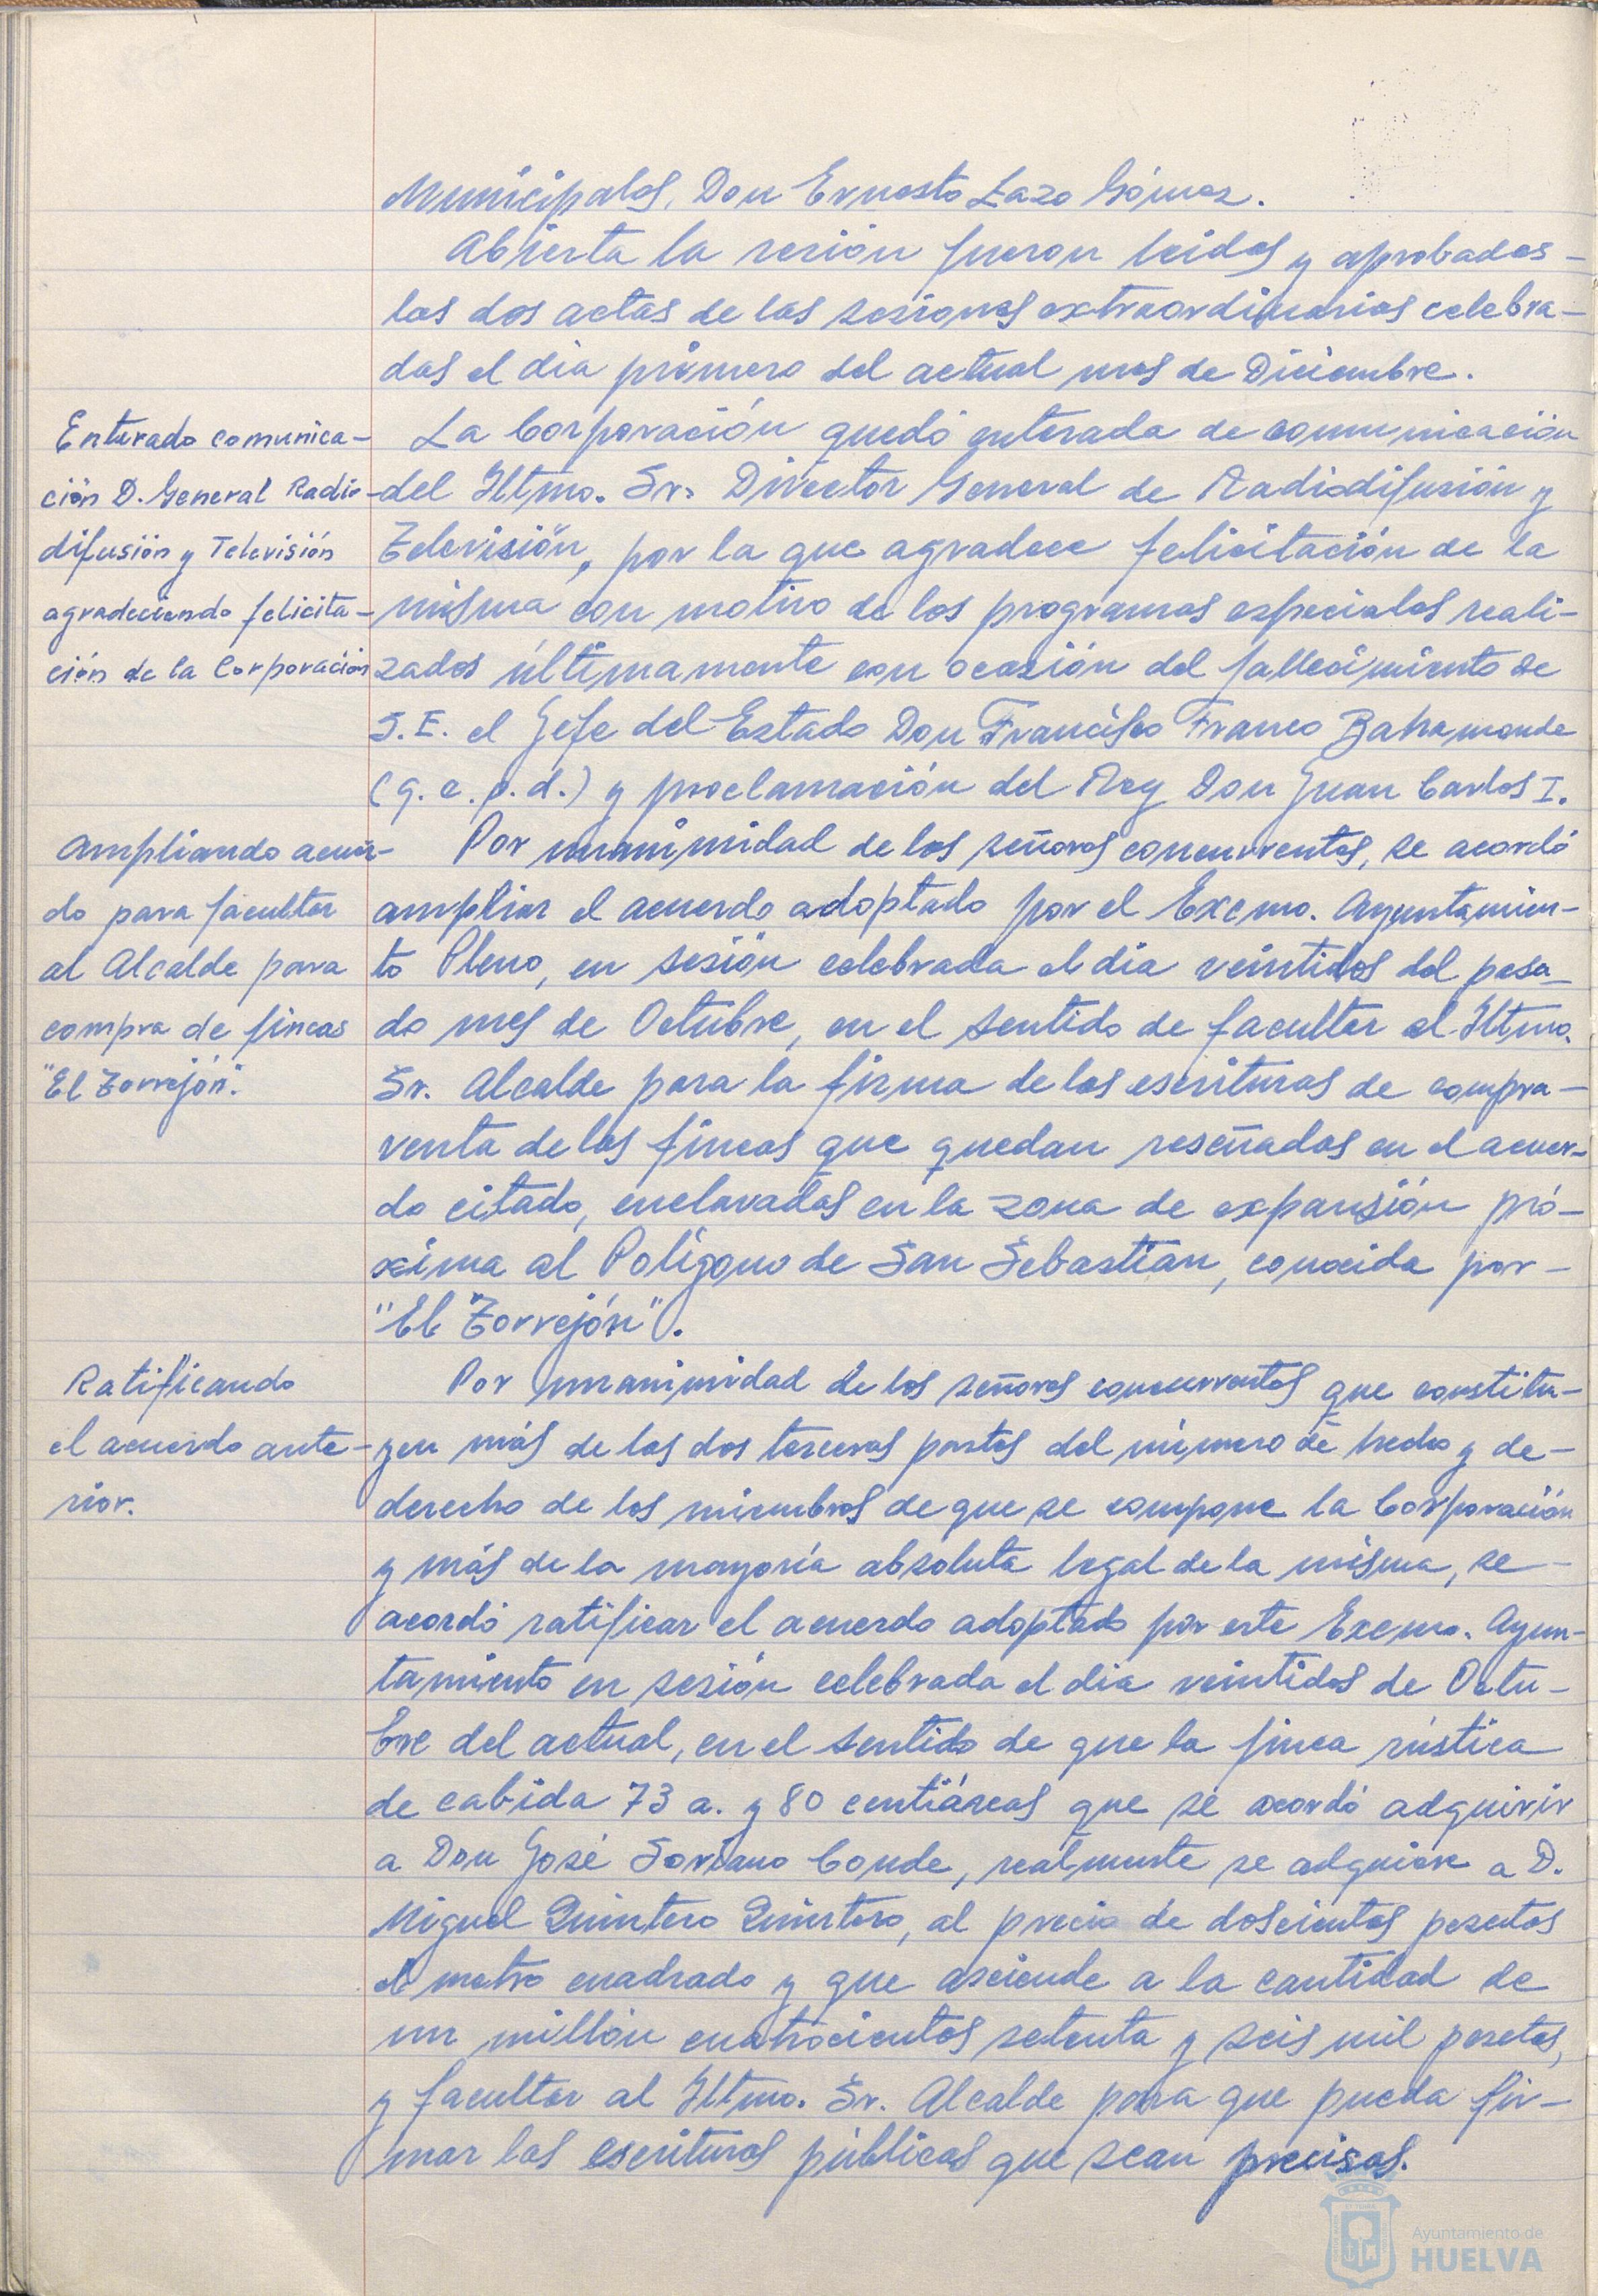 Municipales, Don Ernesto Lazo Gómez.
Abierta la sesión fueron leidas y aprobadas-
las dos actas de las sesiones extraordinarias celebra-
das el dia primero del actual mes de Diciembre.
Enterado comunica-
ción D. General Radio
difusión y Televisión
agradeciendo felicita-
ción de la Corporación
La Corporación quedó enterada de comunicación
del Iltmo. Sr. Director General de Radiodifusión y
Televisión, por la que agradece felicitación de la
misma con motivo de los programas especiales reali-
zados últimamente con ocasión del fallecimiento de
S.E. el Jefe del Estado Don Francisco Franco Bahamonde
(q. e. p. d.) y proclamación del Rey Don Juan Carlos I.
Ampliando acuer-
do para facultar
al Alcalde para
compra de fincas
"El Torrejón".
Por unanimidad de los señores concurrentes, se acordó
ampliar el acuerdo adoptado por el Excmo. Ayuntamien-
to Pleno, en sesión celebrada el dia veintidos del pasa-
do mes de Octubre, en el sentido de facultar al Iltmo.
Sr. Alcalde para la firma de las escrituras de compra-
venta de las fincas que quedan reseñadas en el acuer-
do citado, enclavadas en la zona de expansión pró-
xima al Polígono de San Sebastian, conocida por-
"El Torrejón".
Ratificando
el acuerdo ante-
rior.
Por unanimidad de los señores concurrentes que constitu-
yen más de las dos terceras partes del número de hecho y de-
derecho de los miembros de que se compone la Corporación
y más de la mayoría absoluta legal de la misma, se-
acordó ratificar el acuerdo adoptado por este Excmo. Ayun-
tamiento en sesión celebrada el dia veintidos de Octu-
bre del actual, en el sentido de que la finca rústica
de cabida 73 a. y 80 centiáreas que se acordó adquirir
a Don José Soriano Conde, realmente se adquiere a D.
Miguel Quintero Quintero, al precio de doscientas pesetas
el metro cuadrado y que asciende a la cantidad de
un millón cuatrocientas setenta y seis mil pesetas,
y facultar al Iltmo. Sr. Alcalde para que pueda fir-
mar las escrituras públicas que sean precisas.
Ayuntamiento de
HUELVA